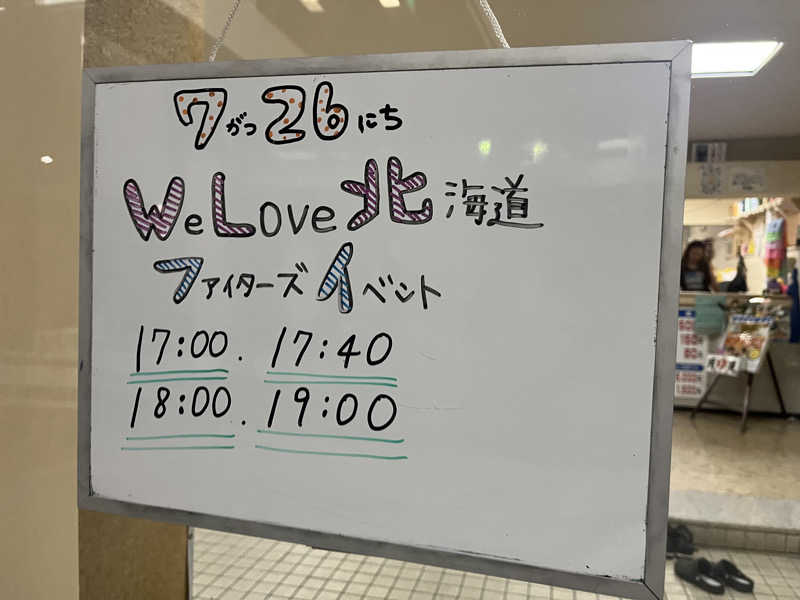 7がつ26にち
We Love 北海道
ファイターズイベント
17:00. 17:40
18:00. 19:00